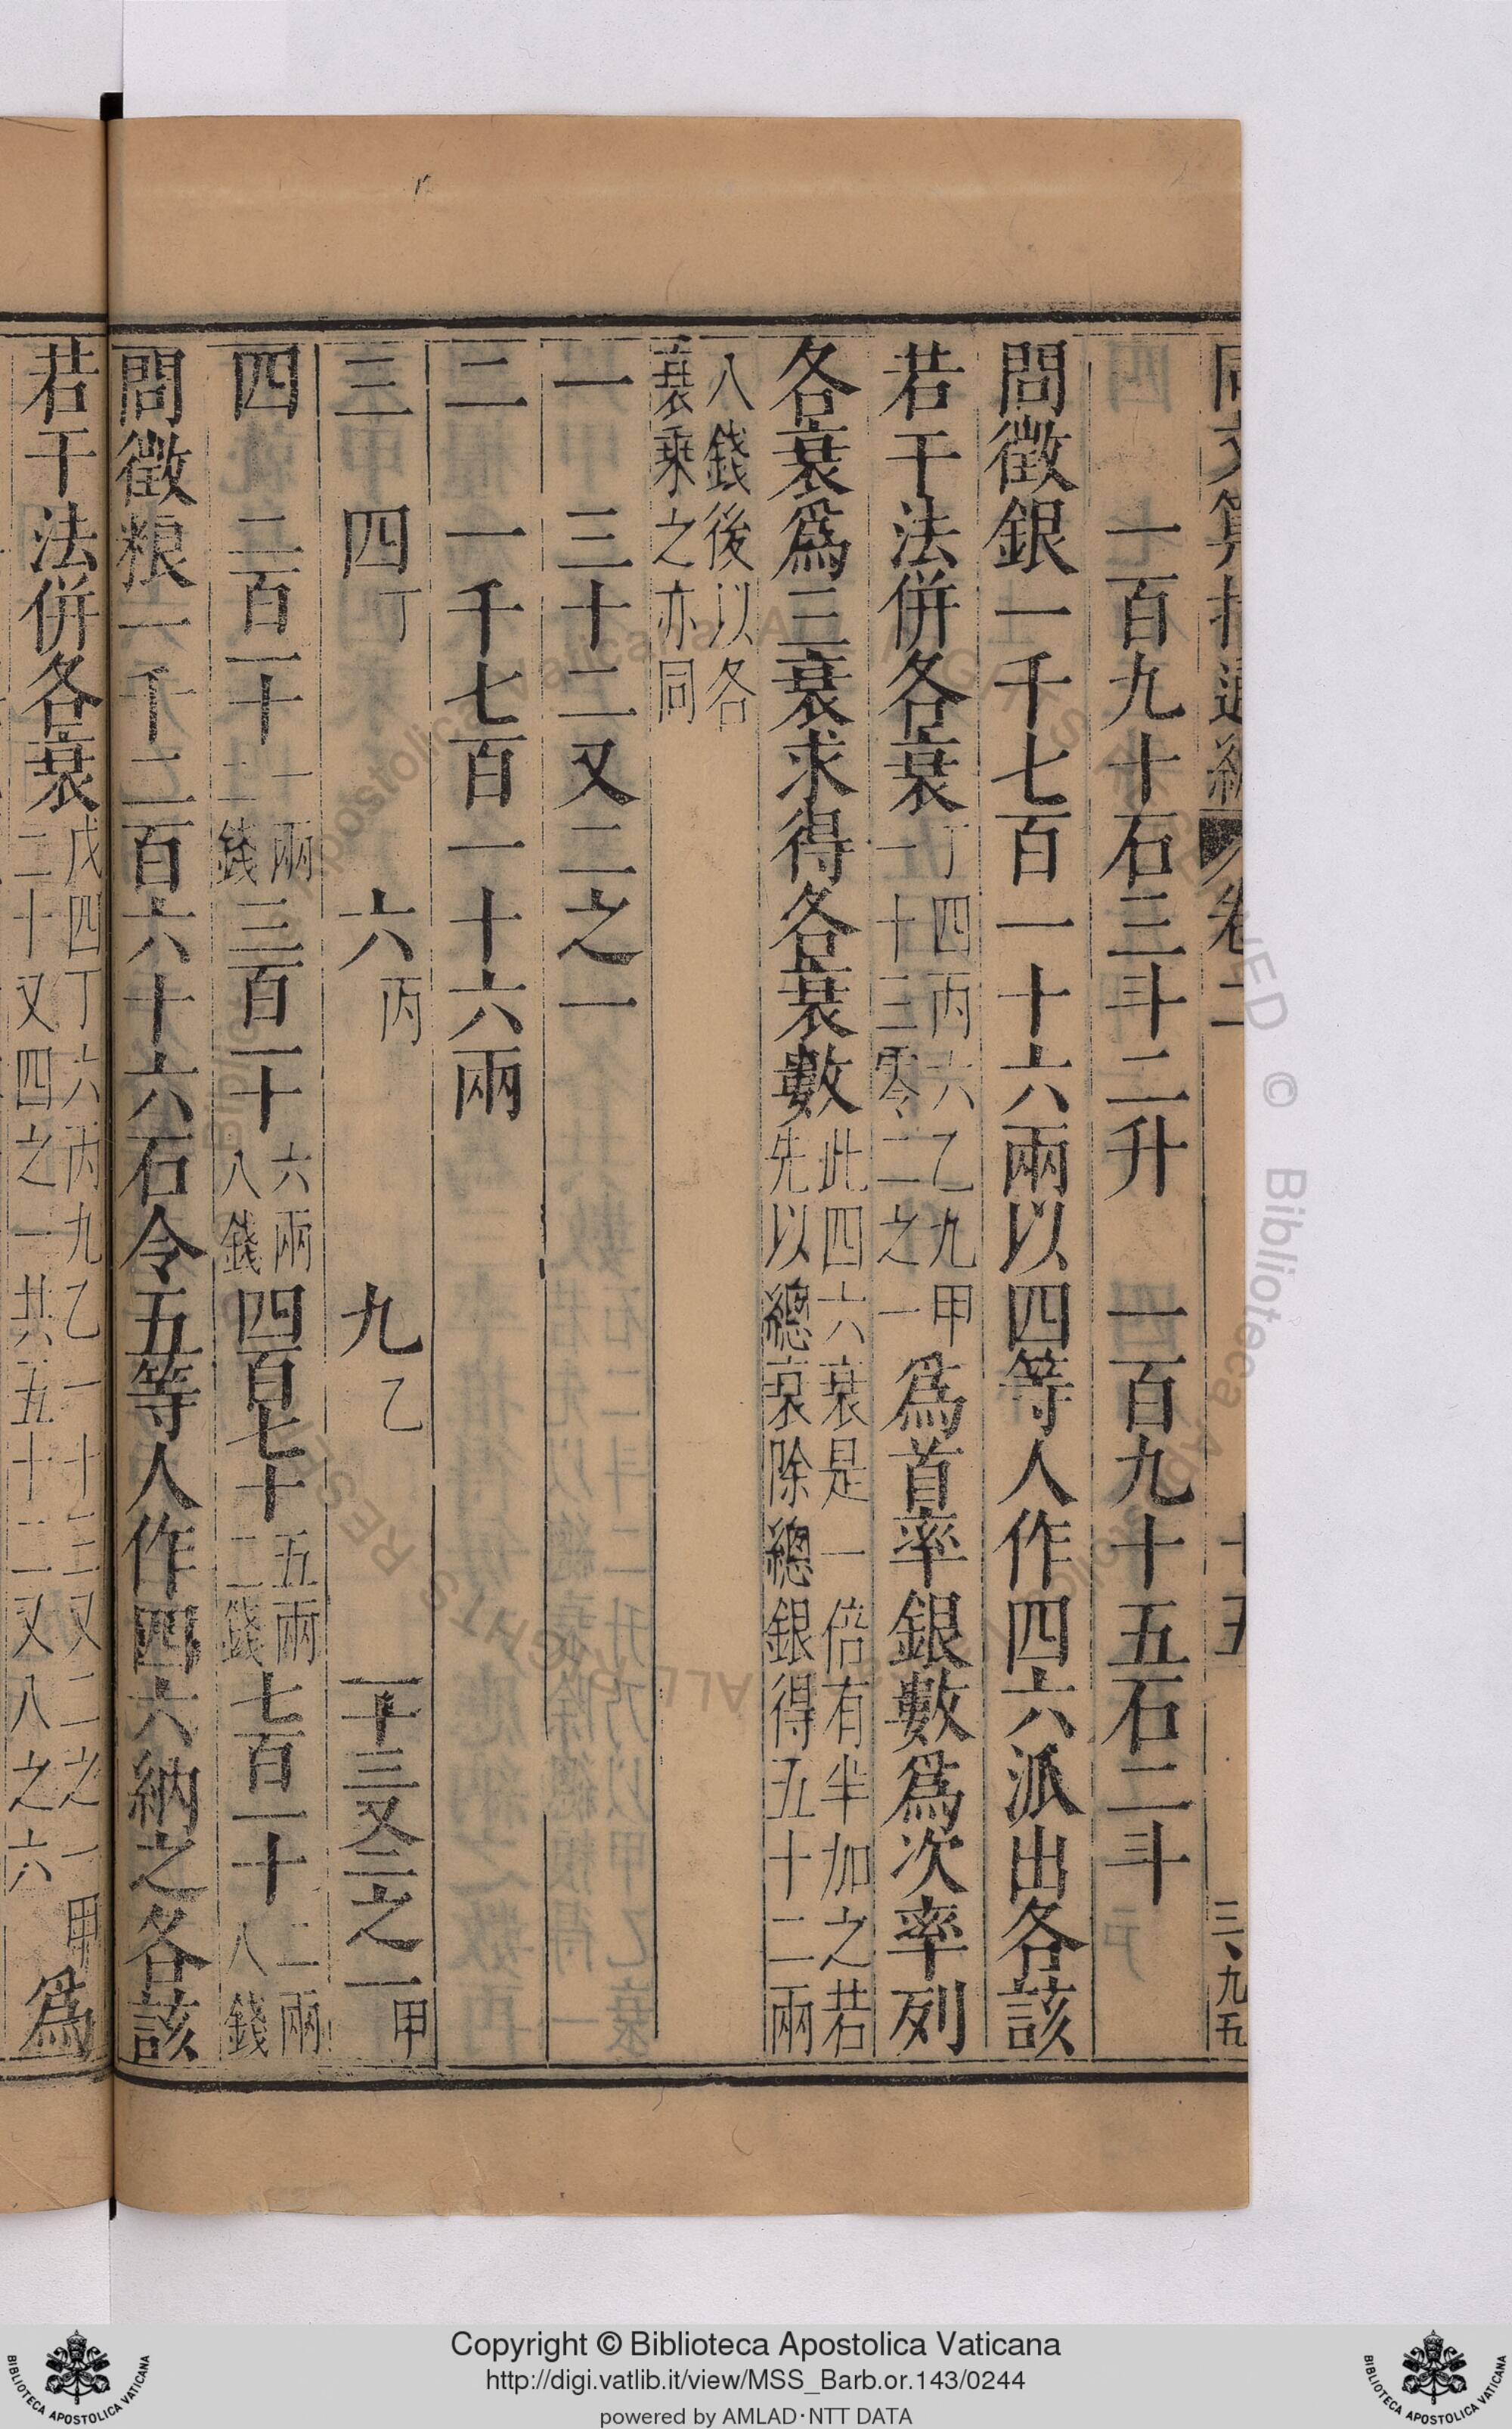 同文算指通編 卷二 十五 三、九五
一百九十石三斗二升 一百九十五石二斗
問徵銀一千七百一十六兩以四等人作四六派出各該
若干法併各衰丁四丙六乙九甲一十三零二之一爲首率銀數爲次率列
各衰爲三衰求得各衰數此四六衰是一倍有半加之若先以總衰除總銀得五十二兩
八錢後以各衰乘之亦同
一 三十二又二之一
二 一千七百一十六兩
三 四丁 六丙 九乙 一十三又二之一甲
四 二百一十一兩二錢 三百一十六兩八錢 四百七十五兩二錢 七百一十二兩八錢
問徵粮一千二百六十六石令五等人作四六納之各該
若干法併各衰戊四丁六丙九乙一十三又二之一甲二十又四之一共五十二又八之六爲
Copyright © Biblioteca Apostolica Vaticana
http://digi.vatlib.it/view/MSS_Barb.or.143/0244
powered by AMLAD·NTT DATA
BIBLIOTECA APOSTOLICA VATICANA
BIBLIOTECA APOSTOLICA VATICANA